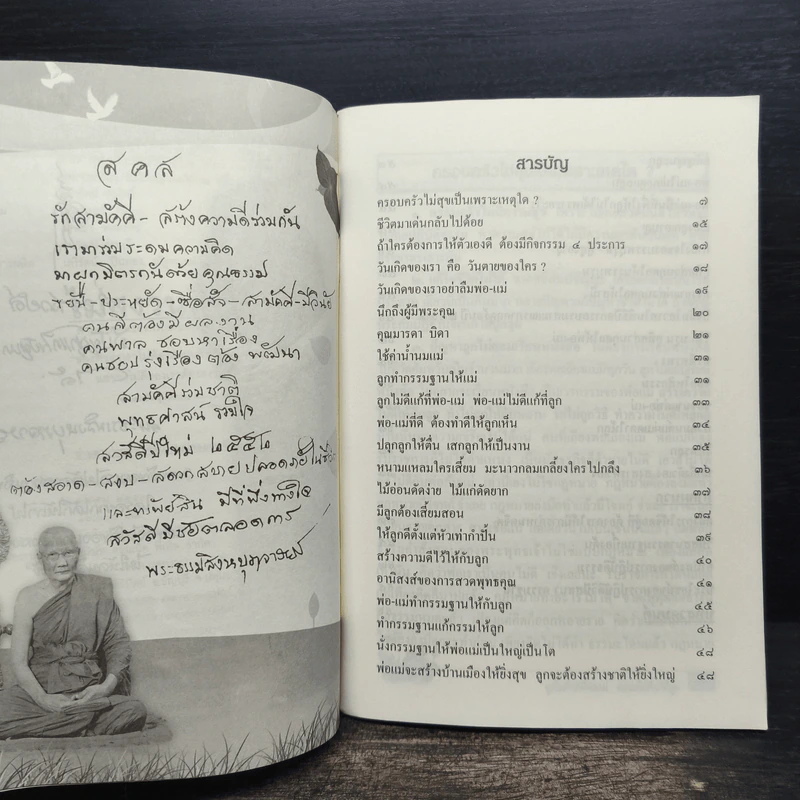 ส ค ส
รักสามัคคี - สร้างความดีร่วมกัน
เรามาร่วมระดมความคิด
มาผูกมิตรกันด้วยคุณธรรม
ขยัน - ประหยัด - ซื่อสัตย์ - สามัคคี - มีวินัย
คนดีต้องมีผลงาน
คนพาล ชอบหาเรื่อง
คนชอบรุ่งเรืองต้องพัฒนา
สามัคคีร่วมชาติ
พุทธศาสน รวมใจ
สวัสดีปีใหม่ ๒๕๕๒
ต้องสะอาด - สงบ - สะดวกสบายปลอดภัยในชีวิต
และทรัพย์สิน มีที่พึ่งทางใจ
สวัสดีมีชัยตลอดกาล
พระธรรมสิงหบุราจารย์
สารบัญ
ครอบครัวไม่สุขเป็นเพราะเหตุใด ? ๗
ชีวิตมาเด่นกลับไปด้อย ๑๕
ถ้าใครต้องการให้ตัวเองดี ต้องมีกิจกรรม ๔ ประการ ๑๗
วันเกิดของเรา คือ วันตายของใคร ? ๑๘
วันเกิดของเราอย่าลืมพ่อ-แม่ ๑๙
นึกถึงผู้มีพระคุณ ๒๐
คุณมารดา บิดา ๒๑
ใช้ค่าน้ำนมแม่ ๓๑
ลูกทำกรรมฐานให้แม่ ๓๑
ลูกไม่ดีแก้ที่พ่อ-แม่ พ่อ-แม่ไม่ดีแก้ที่ลูก ๓๓
พ่อ-แม่ที่ดี ต้องทำดีให้ลูกเห็น ๓๔
ปลุกลูกให้ตื่น เสกลูกให้เป็นงาน ๓๕
หนามแหลมใครเสี้ยม มะนาวกลมเกลี้ยงใครไปกลึง ๓๖
ไม้อ่อนดัดง่าย ไม้แก่ดัดยาก ๓๗
มีลูกต้องเสี้ยมสอน ๓๘
ให้ลูกดีตั้งแต่หัวเท่ากำปั้น ๓๙
สร้างความดีไว้ให้กับลูก ๔๐
อานิสงส์ของการสวดพุทธคุณ ๔๑
พ่อ-แม่ทำกรรมฐานให้กับลูก ๔๕
ทำกรรมฐานแก้กรรมให้ลูก ๔๖
นั่งกรรมฐานให้พ่อแม่เป็นใหญ่เป็นโต ๔๘
พ่อแม่จะสร้างบ้านเมืองให้ยิ่งสุข ลูกจะต้องสร้างชาติให้ยิ่งใหญ่ ๔๘